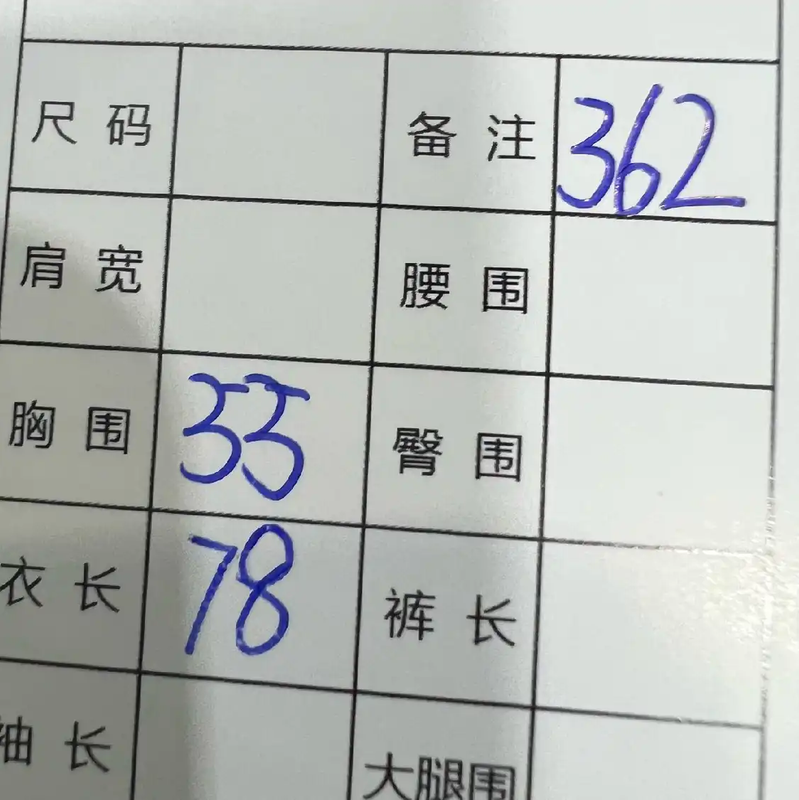 尺码 备注 362
肩宽 腰围
胸围 55 臀围
衣长 78 裤长
袖长 大腿围